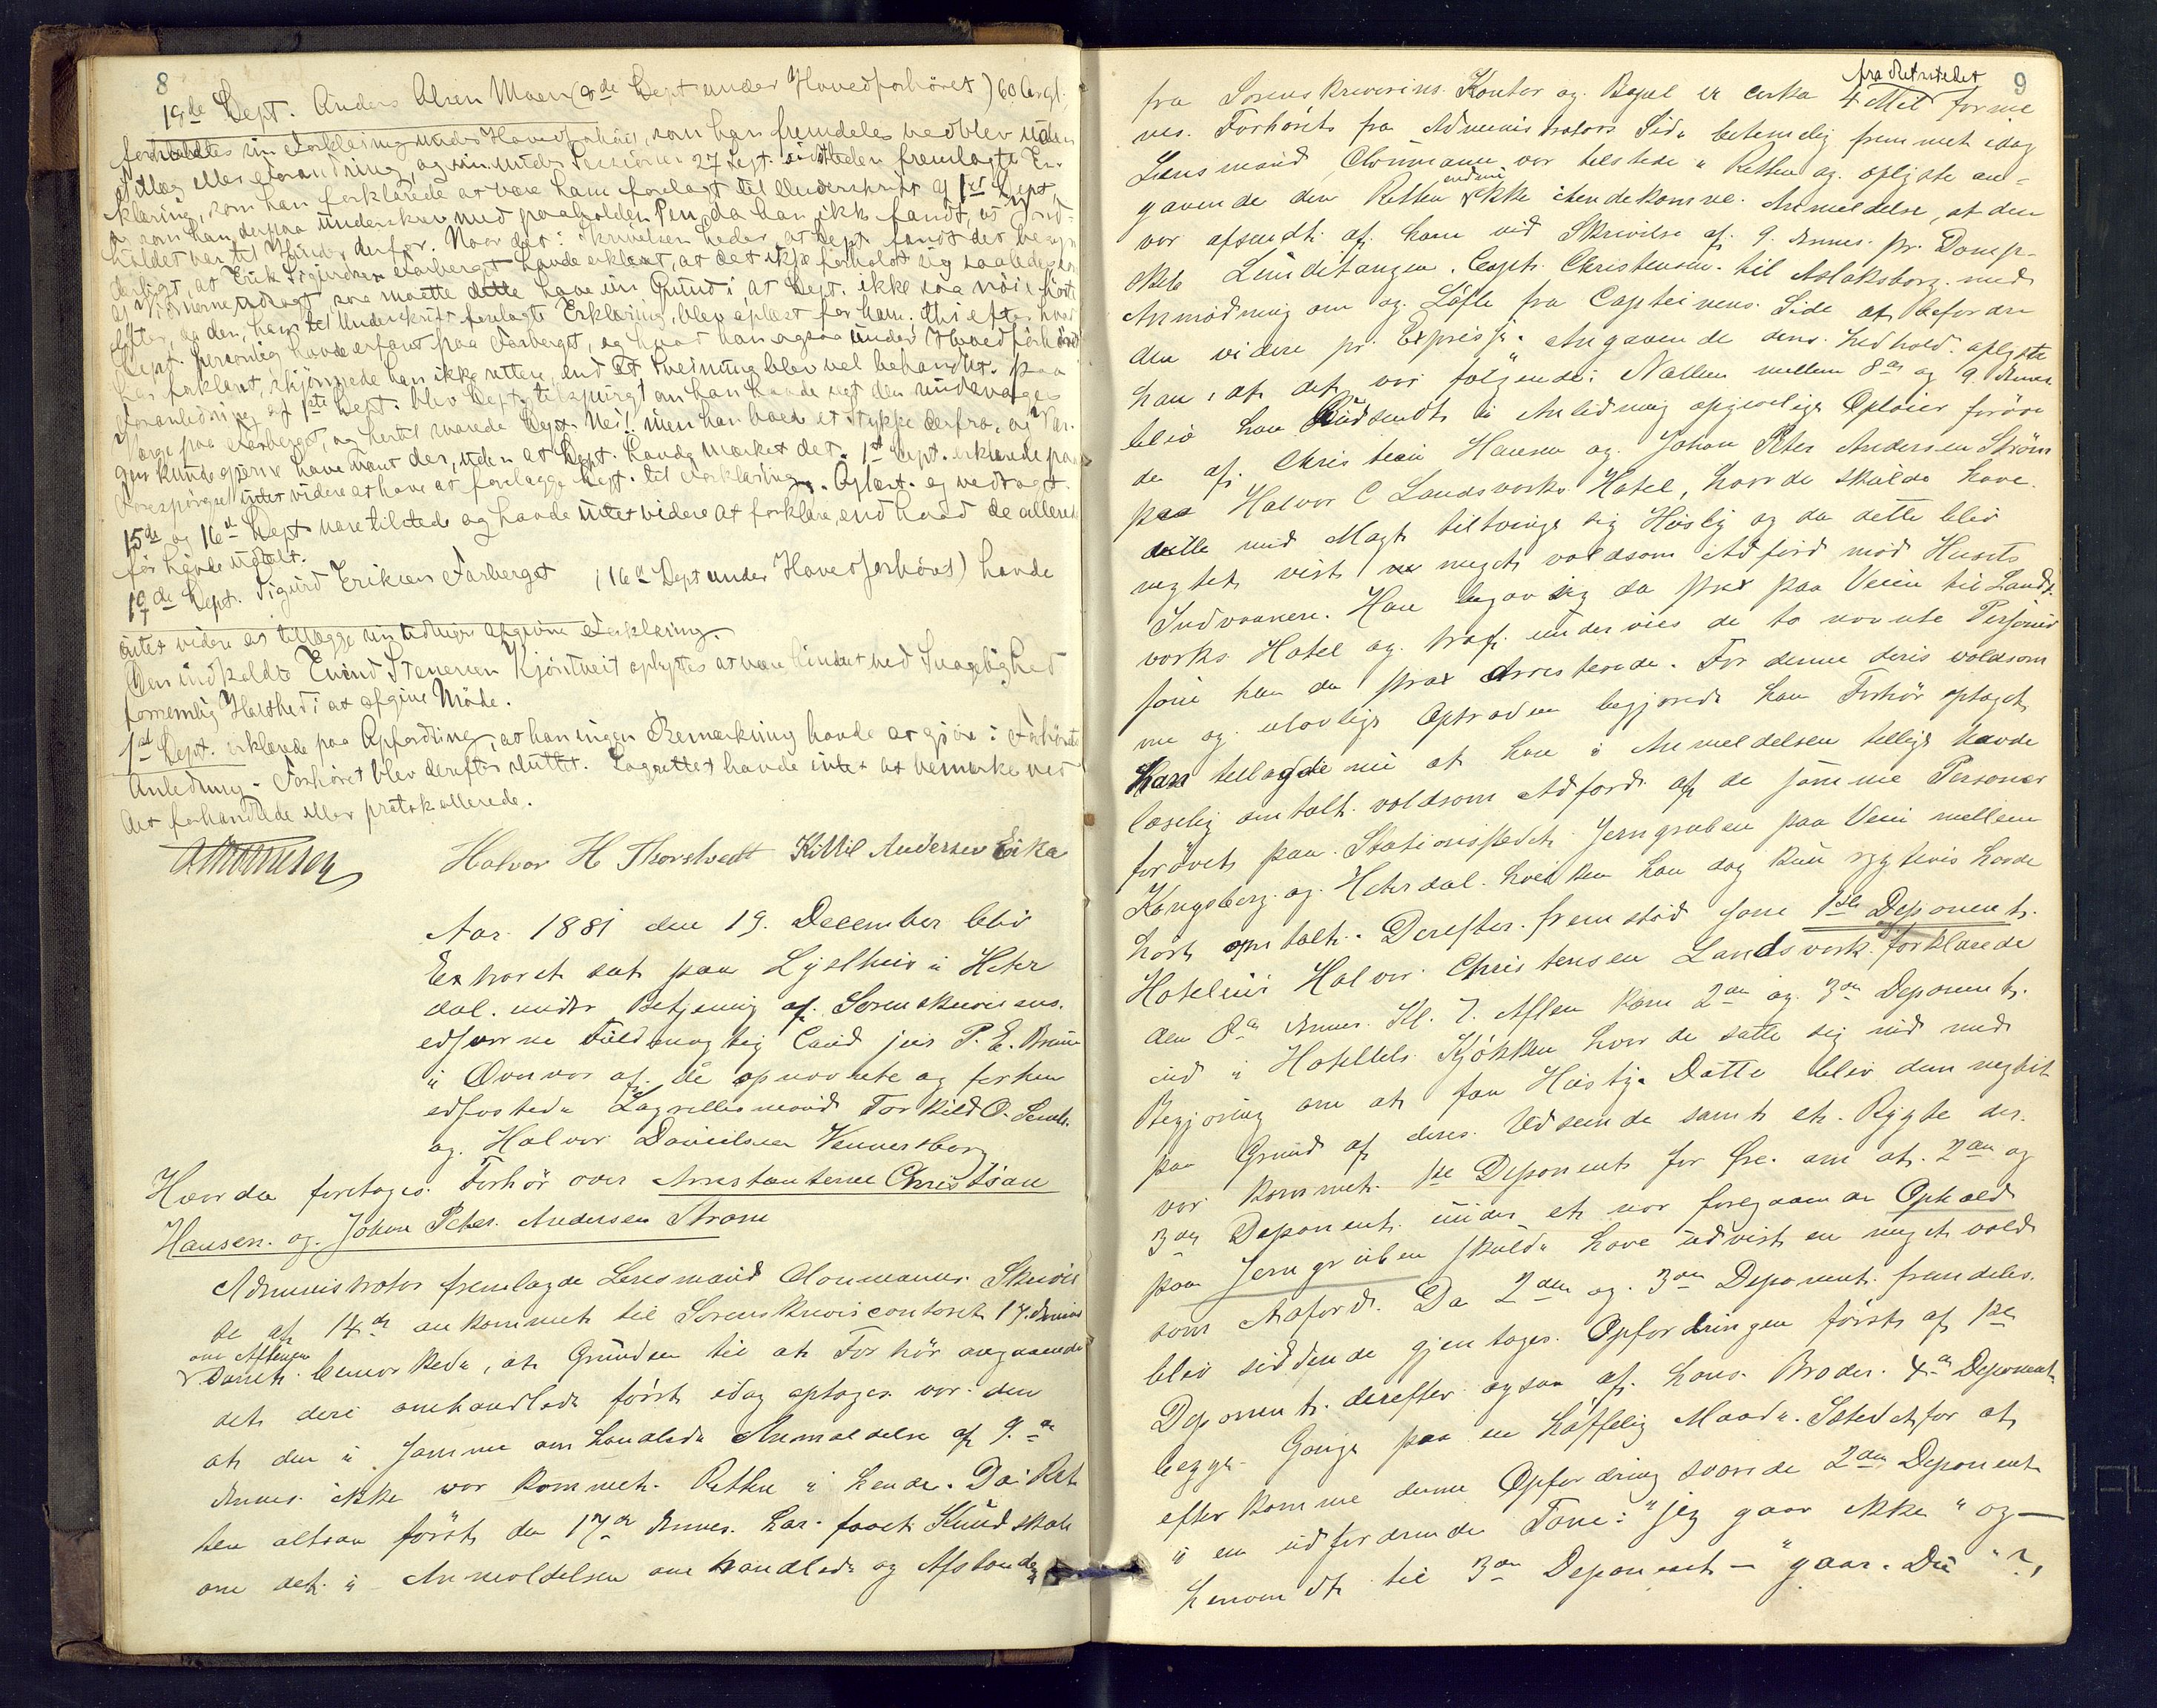 8
19de Dept. Anders Olsen Moen (9de Dept under Hovedforhöret) 60 Aar gl.
sin Forklaring under Hovedforhöret, som han fremdeles vedblev uden
Tillæg eller Forandring, og sin under Sessionen 27 Sept. sidstleden fremlagte Er-
klæring, som han forklarede at være ham forelagt til Underskrift af 1ste Dept,
og som han derpaa underskrev med paaholden Pen, da han ikke fandt, at Ind-
holdet var til Hinder derfor. Naar det i Skrivelsen heder, at Dept. fandt det
at Erik Sigurdsen Farberget havde erklæret, at det ikke forholdt sig saaledes som
af Vidnerne udsagt, saa maatte dette have sin Grund i, at Dept. ikke saa nöie hörte
efter, da den, ham til Underskrift forelagte Erklæring, blev oplæst for ham, thi efter hvad
Dept. personlig havde erfaret paa Farberget, og hvad han ogsaa under Hovedforhöret
har forklaret, skjønnede han ikke rettere, end at Sveinung blev vel behandlet. Paa
Foranledning af 1ste Dept. blev Dept. tilspurgt om han havde seet den
Varge paa Farberget, og hertil svarede Dept. Nei! men han boede et Stykke derfra, og Var-
gen kunde gjerne have været der, uden at Dept. havde mærket det. 1ste Dept. erklærede paa
Forespörgsel intet videre at have at forelægge Dept. til Forklaring. Oplæst og vedtaget.
15de og 16de Dept. vare tilstede og havde intet videre at forklare, end hvad de allerede
för havde udtalt.
17de Dept. Sigurd Eriksen Farberget (16de Dept under Hovedforhöret) havde
intet videre at tillægge sin tidligere afgivne Forklaring.
Den indkaldte Eivind Stenersen Kjöntveit oplystes at være hindret ved Svagelighed
fornemlig Halthed i at afgive Möde.
1ste Dept. erklærede paa Opfordring, at han ingen Bemærkning havde at gjöre i Forhörets
Anledning. Forhöret blev derefter sluttet. Lagrettet havde intet at bemærke ved
det forhandlede eller protokollerede.
Halvor H Thorstvedt Kittil Andersen Eika
Aar 1881 den 19. December blev
Extraret sat paa Lysthuus i Hiter
dal under Betjening af Sorenskriverens
edsvorne Fuldmægtig Cand jur P. E. Bruun
i Overvær af de opnævnte og forhen
edfæstede Lagrettesmænd Torkild O. Semb
og Halvor Danielsen Vennersborg
Hvorda foretoges Forhör over Arrestanterne Christian
Hansen og Johan Peter Andersen Ström
Administrator fremlagde Lensmand Clonmanns Skrivel
se af 14de ankommet til Sorenskrivercontoret 17. dennes
om Aftenen
Dareth bemærkede, at Grunden til at Forhör angaaende
det deri omhandlede först idag optoges var den
at den i samme omhandlede Anmeldelse af 9de
dennes ikke var kommet Retten i Hænde. Da Ret
ten altsaa först den 17de dennes har faaet Kundskab
om det i Anmeldelsen omhandlede og Afstanden
9
fra Retstedet
fra Sorenskriverens Kontor og Bopæl er cirka 4 Mil forme
nes Forhöret fra Administrators Side betimelig fremmet idag
Lensmand Clonmann var tilstede i Retten og oplyste an-
gaaende den Retten endnu ikke ihændekomne Anmeldelse, at den
var afsendt af ham ved Skrivelse af 9. dennes pr. Damp-
skib Lundetangen, Capt. Christensen til Aslaksborg med
Anmodning om og Löfte fra Capteinens Side at befordre
den videre pr. Expresse. Angaaende dens Indhold oplyste
han, at det var fölgende: Natten mellem 8de og 9 dennes
blev han budsendt i Anledning opgivelige Optöier forövede
af Christian Hansen og Johan Peter Andersen Ström
paa Halvor C Landsverks Hotel, hvor de skulde have
villet med Magt tiltvinge sig Huusly og da dette blev
nægtet vist en meget voldsom Adfærd mod Husets
Indvaanere. Han begav sig da strax paa Veien til Lands
værks Hotel og traf underveis de to nævnte Personer
som han da strax arresterede. For denne deres voldsom
me og ulovlige Optræden begjærede han Forhör optaget
Han tillagde nu at han i Anmeldelsen tillige havde
löselig omtalt voldsom Adfærd af de samme Personer
forövet paa Stationsstedet Jerngruben paa Veien mellem
Kongsberg og Hiterdal hvilken han dog kun rygtevis havde
hört omtalt. Derefter fremstod som 1ste Deponent
Hoteleier Halvor Christensen Landsværk forklarede
den 8de dennes Kl. 7 Aften kom 2den og 3die Deponent
ind i Hotellets Kjökken hvor de satte sig ned med
Begjæring om at faa Huusly. Dette blev dem nægtet
paa Grund af deres Udseende samt et Rygte der
var kommet 1ste Deponent for Öre om at 2den og
3die Deponent under et nær foregaaende Ophold
paa Jerngruben skulde have udvist en meget vold
som Adfærd. Da 2den og 3die Deponent fremdeles
blev siddende gjentoges Opfordringen först af 1ste
Deponent derefter ogsaa af hans Broder 4de Deponent
begge Gange paa en höflelig Maade. Istedetfor at
efterkomme denne Opfordring svarede 2den Deponent
i en udfordrende Tone: "jeg gaar ikke" og—
henvendt til 3die Deponent — "gaar Du"?,